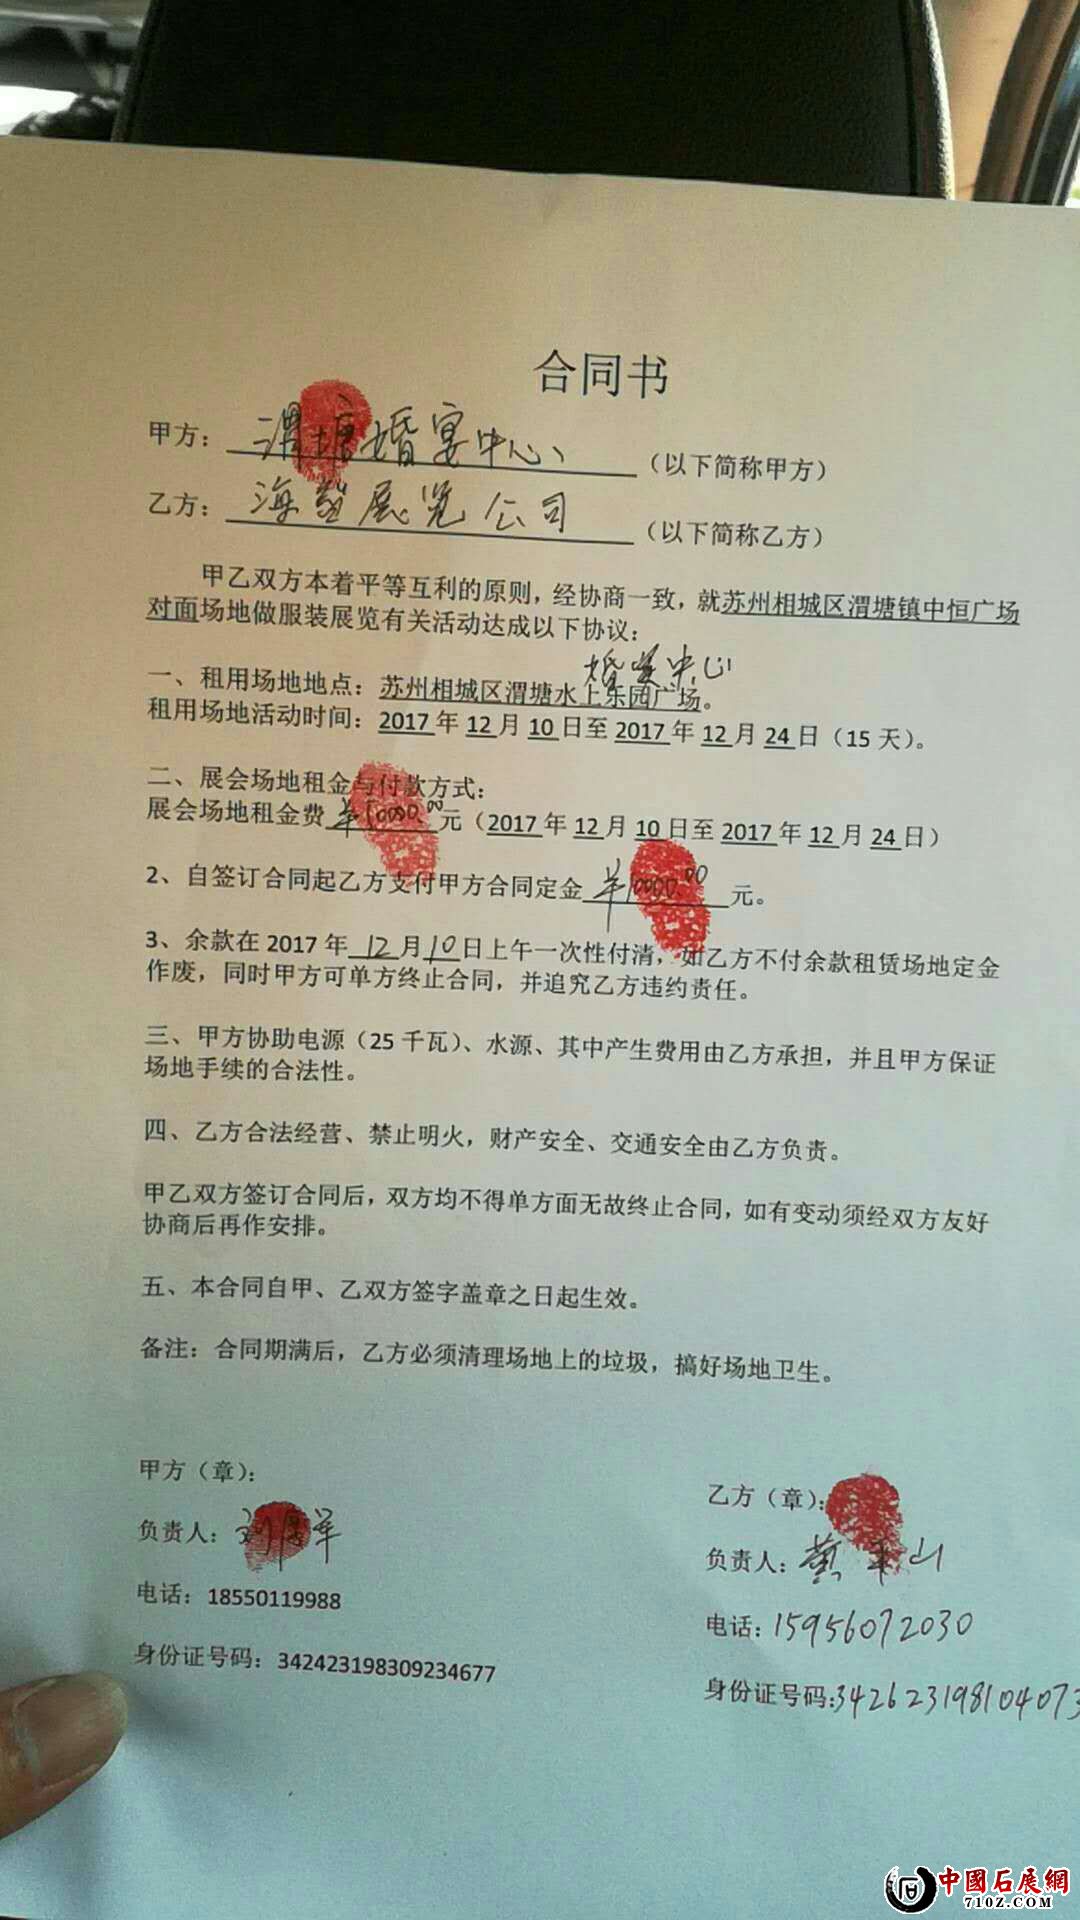 合同书
甲方：渭塘婚宴中心（以下简称甲方）
乙方：海 展览公司（以下简称乙方）
甲乙双方本着平等互利的原则，经协商一致，就苏州相城区渭塘镇中恒广场
对面场地做服装展览有关活动达成以下协议：
婚宴中心
一、租用场地地点：苏州相城区渭塘水上乐园广场。
租用场地活动时间：2017年12月10日至2017年12月24日（15天）。
二、展会场地租金与付款方式：
展会场地租金费 ¥10000.00元（2017年12月10日至2017年12月24日）
2、自签订合同起乙方支付甲方合同定金 ¥10000.00 元。
3、余款在2017年 12月10日上午一次性付清，如乙方不付余款租赁场地定金
作废，同时甲方可单方终止合同，并追究乙方违约责任。
三、甲方协助电源（25千瓦）、水源、其中产生费用由乙方承担，并且甲方保证
场地手续的合法性。
四、乙方合法经营、禁止明火，财产安全、交通安全由乙方负责。
甲乙双方签订合同后，双方均不得单方面无故终止合同，如有变动须经双方友好
协商后再作安排。
五、本合同自甲、乙双方签字盖章之日起生效。
备注：合同期满后，乙方必须清理场地上的垃圾，搞好场地卫生。
甲方（章）：
负责人：刘 军
电话：18550119988
身份证号码：342423198309234677
乙方（章）：
负责人：黄 山
电话：15956072030
身份证号码：342623198104073
中國石展網
710Z.COM